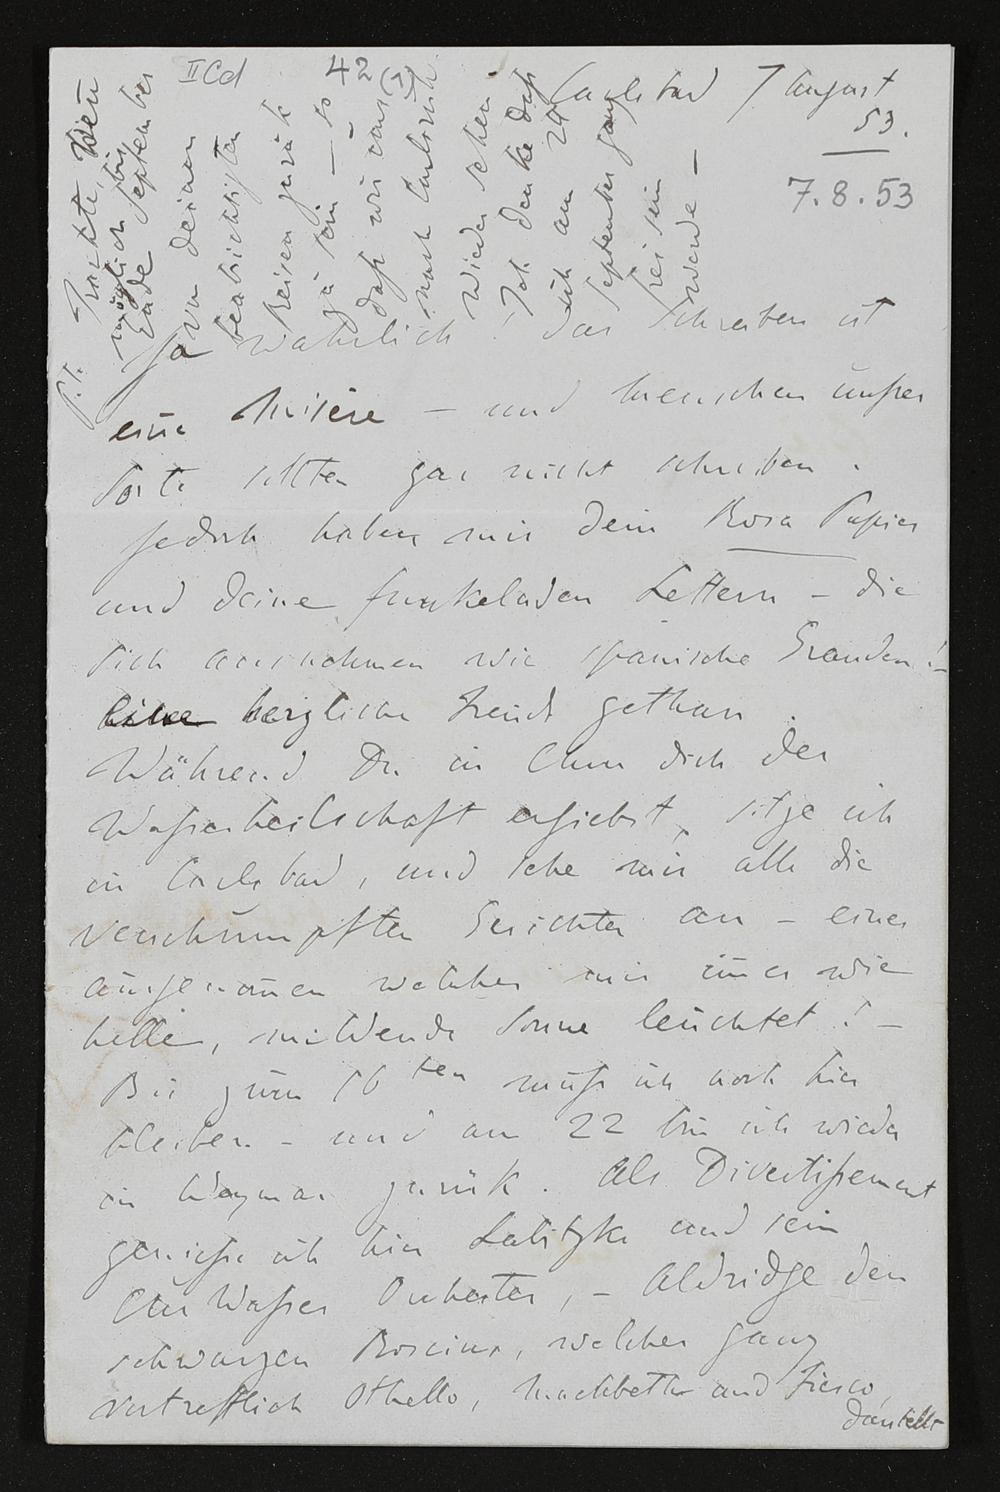 II Cd
42 (1)
Carlsbad 7 August
53.
7.8.53
Ja wahrlich! das Schreiben ist
eine Misère – und Menschen unsrer
Sorte sollten gar nicht schreiben.
Jedoch haben mir dein Rosa Papier
und deine funkelnden Lettern – die
sich ausnehmen wie spanische Granden! –
eine herzliche Freude gethan.
Während Du in Chur dich der
Wasserheilschaft ergiebst, sitze ich
in Carlsbad, und sehe mir alle die
verschrumpften Gesichter an – eines
ausgenom̄en welches mir im̄er wie
helle, mildernde Sonne leuchtet! –
Bis zum 16ten muß ich noch hier
bleiben – und am 22 bin ich wieder
in Weymar zurük. Als Divertißement
genieße ich hier Labitzky und sein
Cur Wasser Orchester, – Aldridge den
schwarzen Roscius, welcher ganz
vortrefflich Othello, Mackbeth und Fiesco,
darstellt
P.S. Trachte, wen̄
möglich bis
Ende September
von deinen
beabsichtigten
Reisen zurük
zu sein – so
daß wir uns
nach Carlsruh
wieder sehen.
Ich denke daß
ich am 24
September ganz
frei sein
werde –